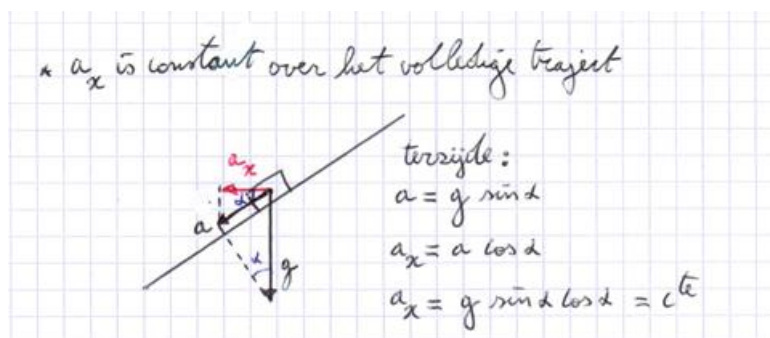 * aₓ is constant over het volledige traject
terzijde:
a = g sin α
aₓ = a cos α
aₓ = g sin α cos α = cᵗᵉ
aₓ
α
a
α
g